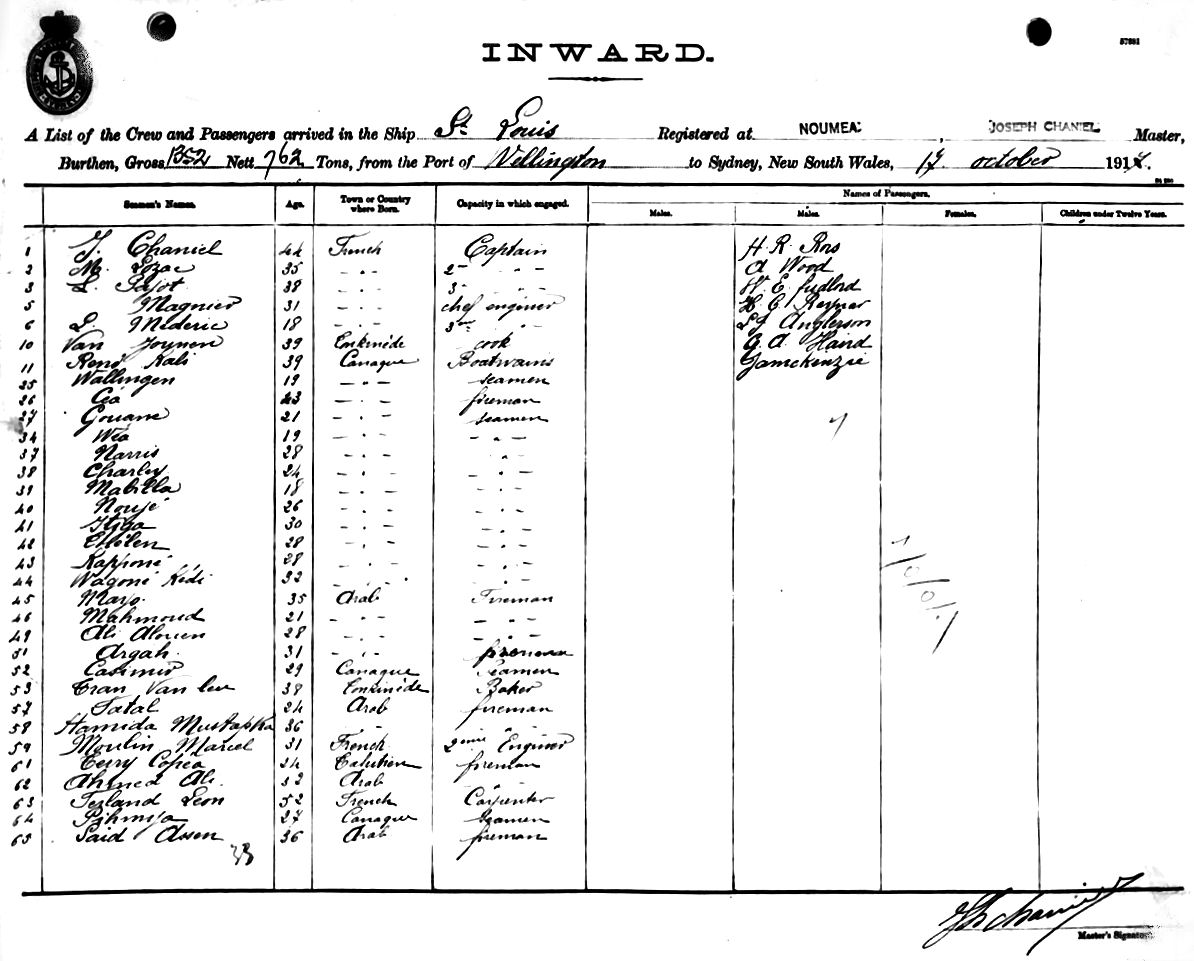 57881
INWARD.
A List of the Crew and Passengers arrived in the Ship St Louis Registered at NOUMEA, JOSEPH CHANIEL Master,
Burthen, Gross 1352 Nett 762 Tons, from the Port of Wellington to Sydney, New South Wales, 17 october 191
Seamen's Names. Age. Town or Country where Born. Capacity in which engaged. Names of Passengers.
Males. Males. Females. Children under Twelve Years.
1 J. Chaniel 44 French Captain H. R. Ross
2 M. Lozac 35 - . - 2 - . - A Wood
3 L. Pajot 38 - . - 3 - . - W. E.
5 Magnier 31 - . - chef engineer H. E. Reyner
6 L. Mederic 18 - . - 3
10 Van 39 Tonkinède cook G. A. Haird
11 René Kali 39 Canaque Boatwains Jamckenzie
25 Wallingen 19 - . - seamen
26 Cia 23 - . - fireman
27 Gouane 21 - . - seamen
7
34 Wia 19 - . - - . -
37 Narris 28 - . - - . -
38 Charley 24 - . - - . -
39 Mabilla 18 - . - - . -
40 Noujé 26 - . - - . -
41 30 - . - - . -
42 28 - . - - . -
43 Kapponé 28 - . - - . -
44 Wagoné Kédi 32 - . - - . -
45 Mayo 35 Arab Fireman
46 Mahmoud 21 - . - - . -
49 Ali 28 - . - - . -
51 Argah 31 - . - fireman
52 Casimir 29 Canaque Seamen
53 Tran Van 38 Tonkinède Baker
57 Tatal 24 Arab fireman
58 Hamida Mustapka 36 - . - "
59 Moulin Marcel 31 French 2eme Engineer
61 24 fireman
62 Ahmed Ali 32 Arab
63 Leon 52 French Carpenter
64 27 Canaque Seamen
65 Said Assen 36 Arab fireman
33
Master's Signature